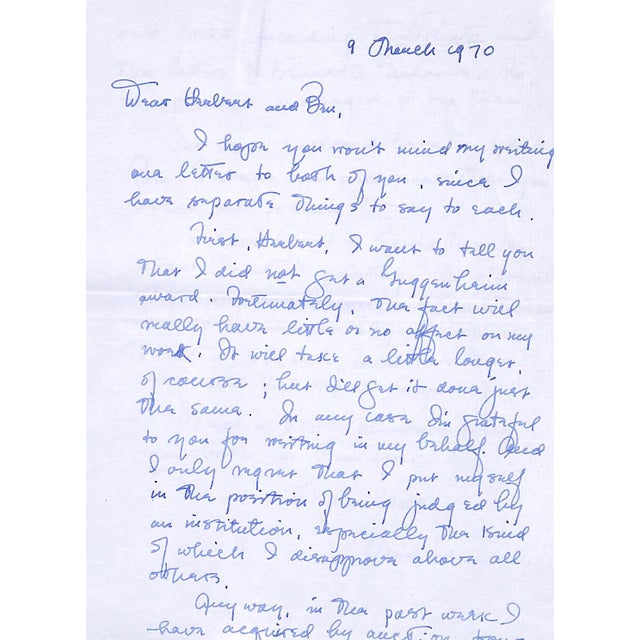 9 March 1970
Dear Herbert and Ben,
I hope you won't mind my writing
one letter to both of you, since I
have separate things to say to each.
First, Herbert, I want to tell you
that I did not get a Guggenheim
award. Fortunately, the fact will
really have little or no affect on my
work. It will take a little longer,
of course; but I'll get it done just
the same. In any case I'm grateful
to you for writing in my behalf. And
I only regret that I put myself
in the position of being judged by
an institution, especially the kind
of which I disapprove above all
others.
Anyway, in the past week I
have acquired by auction